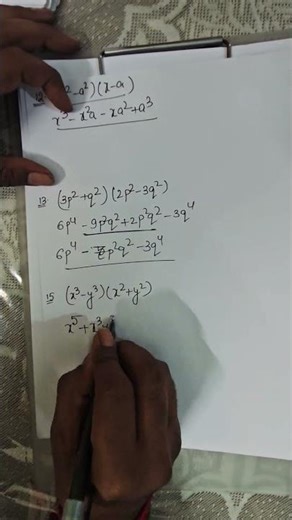 ² - a²) (x - a)
x³ - x²a - xa² + a³
13 (3p² + q²) (2p² - 3q²)
6p⁴ - 9p²q² + 2p²q² - 3q⁴
6p⁴ - 7p²q² - 3q⁴
15 (x³ - y³) (x² + y²)
x⁵ + x³